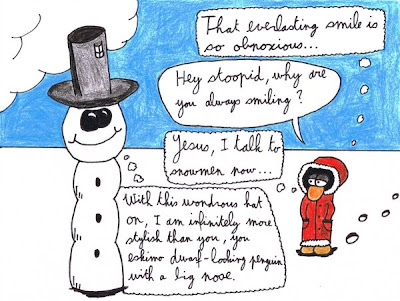 That everlasting smile is
so obnoxious...
Hey stoopid, why are
you always smiling?
Yesus, I talk to
snowmen now...
With this wondrous hat
on, I am infinitely more
stylish than you, you
eskimo dwarf-looking penguin
with a big nose.